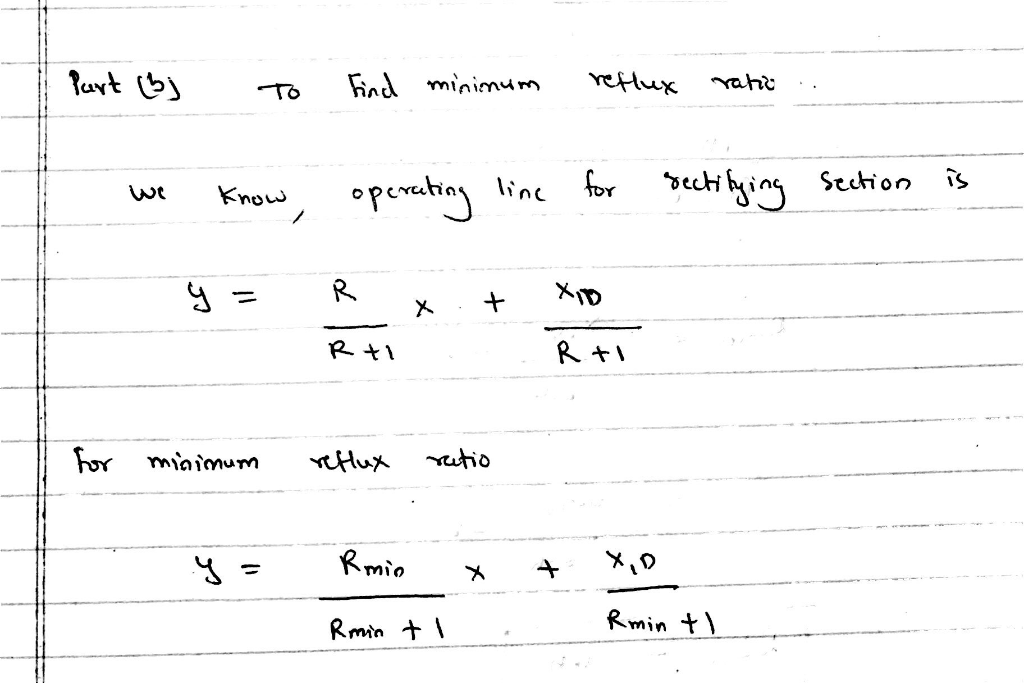 Part (b) To Find minimum reflux ratio ..
we know, operating line for rectifying section is
y = R/R+1 x + X1D/R+1
For minimum reflux ratio
y = Rmin/Rmin+1 x + X1D/Rmin+1